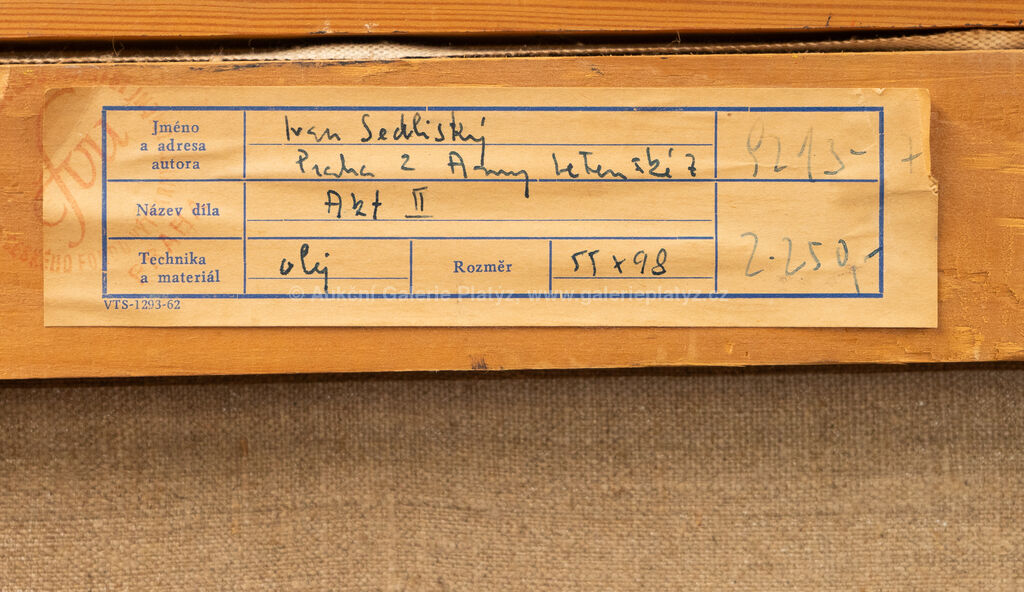 Jméno
a adresa
autora
Ivan Sedliský
Praha 2 Anny Letenské 7
9213-
Název díla
Akt II
Technika
a materiál
olej
Rozměr
55 x 98
2.250,-
VTS-1293-62
© Aukční Galerie Platýz www.galerieplatyz.cz